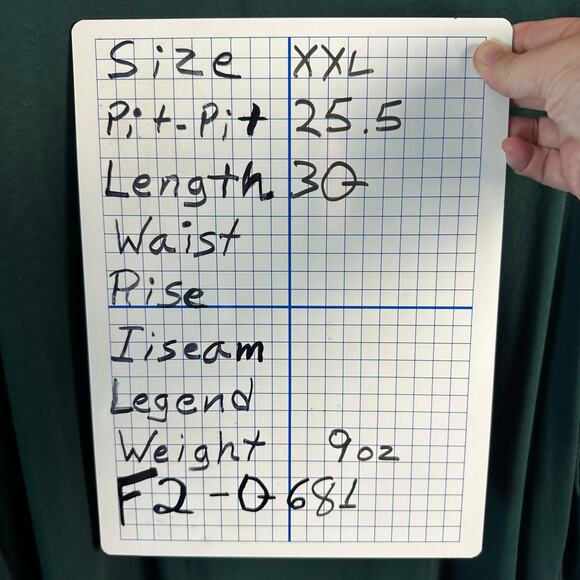 Size XXL
Pit-Pit 25.5
Length 30
Waist
Rise
Iiseam
Legend
Weight 9oz
F2-0681